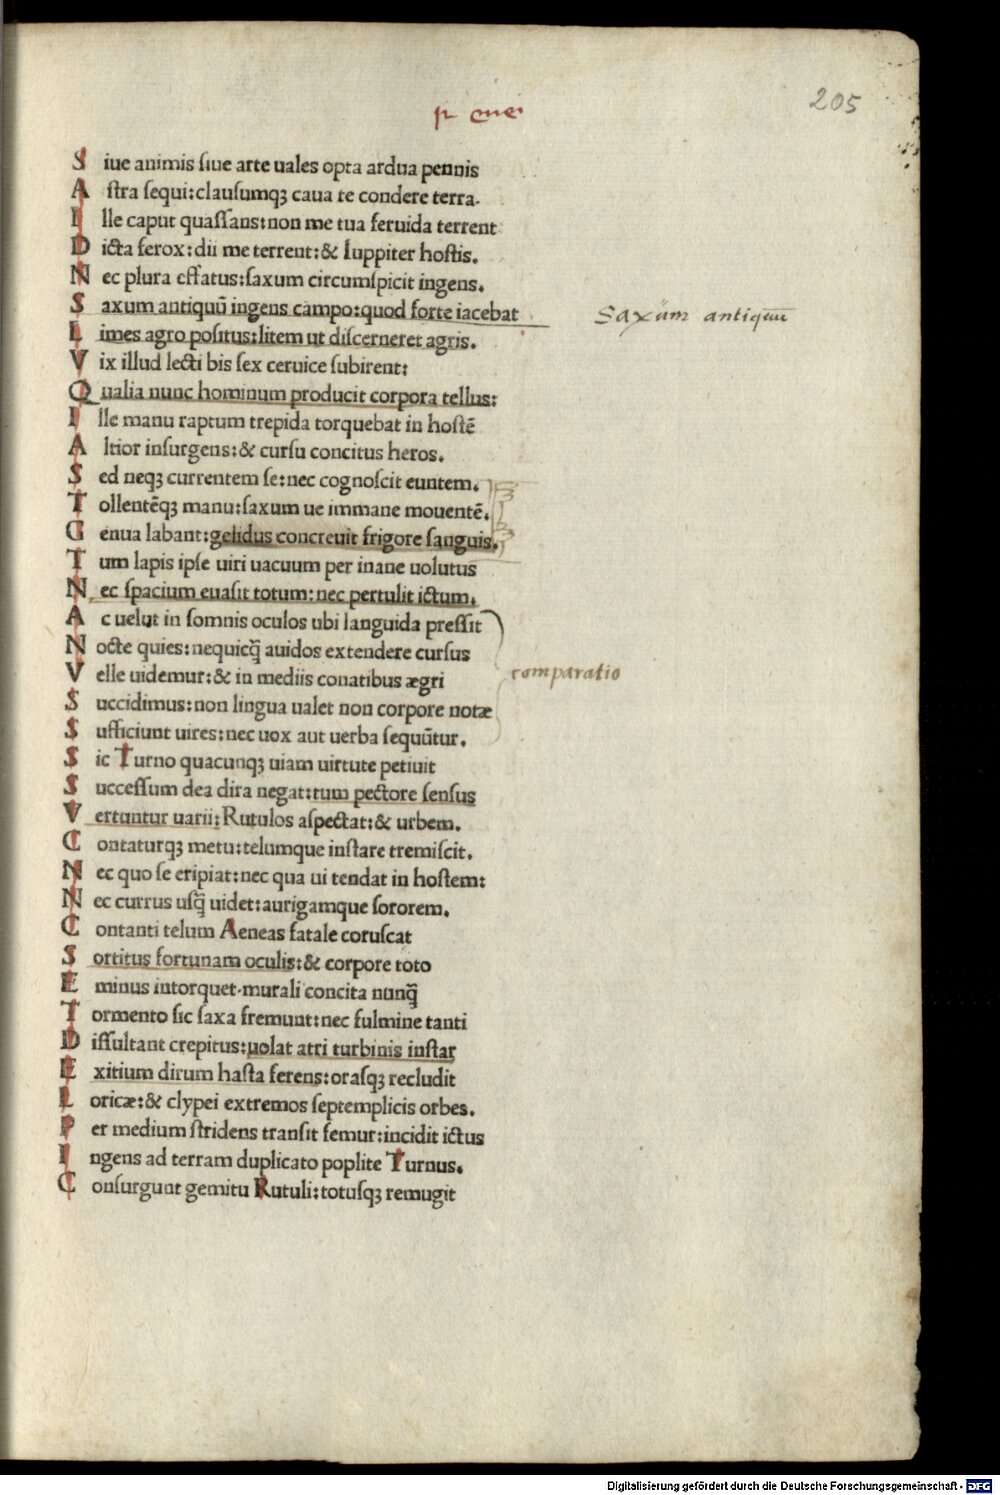 205
Siue animis ſiue arte uales opta ardua pennis
Aſtra ſequi:clauſumqꝫ caua te condere terra.
Ille caput quaſſans:non me tua feruida terrent
Dicta ferox:dii me terrent:& Iuppiter hoſtis.
Nec plura effatus:ſaxum circumſpicit ingens.
Saxum antiquū ingens campo:quod forte iacebat
Saxum antiquū
Limes agro poſitus:litem ut diſcerneret agris.
Vix illud lecti bis ſex ceruice ſubirent:
Qualia nunc hominum producit corpora tellus:
Ille manu raptum trepida torquebat in hoſtē
Altior inſurgens:& curſu concitus heros.
Sed neqꝫ currentem ſe:nec cognoſcit euntem.
Tollentēqꝫ manu:ſaxum ue immane mouentē.
Genua labant:gelidus concreuit frigore ſanguis.
Tum lapis ipſe uiri uacuum per inane uolutus
Nec ſpacium euaſit totum:nec pertulit ictum.
Ac uelut in ſomnis oculos ubi languida preſſit
Nocte quies:nequicq̄ auidos extendere curſus
Velle uidemur:& in mediis conatibus ægri
comparatio
Succidimus:non lingua ualet non corpore notæ
Sufficiunt uires:nec uox aut uerba ſequūtur.
Sic Turno quacunqꝫ uiam uirtute petiuit
Succeſſum dea dira negat:tum pectore ſenſus
Vertuntur uarii:Rutulos aſpectat:& urbem.
Contaturqꝫ metu:telumque inſtare tremiſcit.
Nec quo ſe eripiat:nec qua ui tendat in hoſtem:
Nec currus uſq̄ uidet:aurigamque ſororem.
Contanti telum Aeneas fatale coruſcat
Sortitus fortunam oculis:& corpore toto
Eminus intorquet.murali concita nunq̄
Tormento ſic ſaxa fremunt:nec fulmine tanti
Diſſultant crepitus:uolat atri turbinis inſtar
Exitium dirum haſta ferens:oraſqꝫ recludit
Loricæ:& clypei extremos ſeptemplicis orbes.
Per medium ſtridens tranſit femur:incidit ictus
Ingens ad terram duplicato poplite Turnus.
Conſurgunt gemitu Rutuli:totuſqꝫ remugit
Digitalisierung gefördert durch die Deutsche Forschungsgemeinschaft - DFG